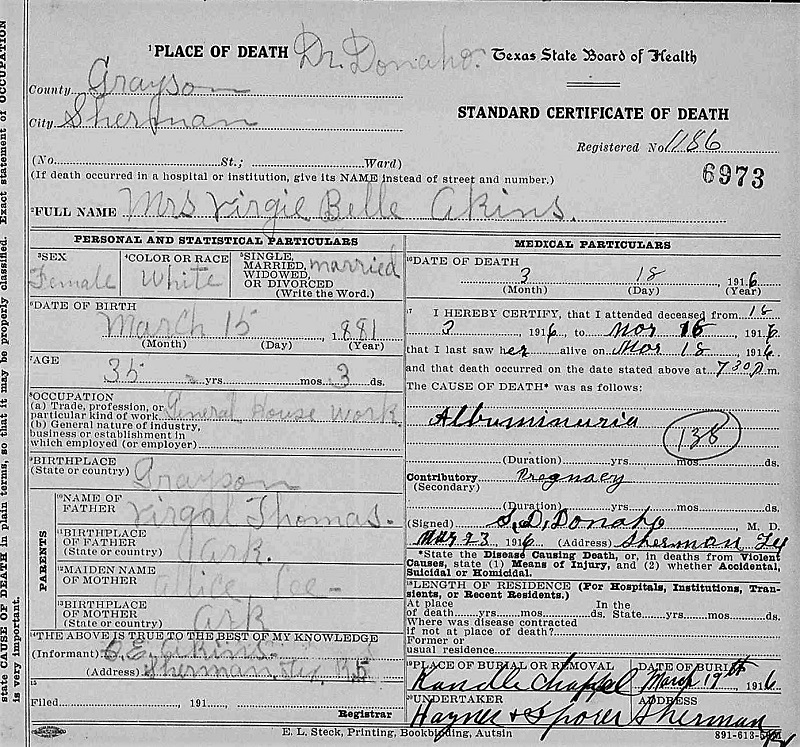 ¹PLACE OF DEATH Dr. Donaho. Texas State Board of Health
County Grayson
City Sherman
STANDARD CERTIFICATE OF DEATH
Registered No. 1186
6973
(No. St.; Ward)
(If death occurred in a hospital or institution, give its NAME instead of street and number.)
²FULL NAME Mrs Virgie Belle Akins.
PERSONAL AND STATISTICAL PARTICULARS
³SEX
Female
⁴COLOR OR RACE
White
⁵SINGLE, MARRIED, WIDOWED, OR DIVORCED (Write the Word.) married
⁶DATE OF BIRTH
March 15, 1881
(Month) (Day) (Year)
⁷AGE
35 yrs. mos. 3 ds.
⁸OCCUPATION
(a) Trade, profession, or particular kind of work General House work
(b) General nature of industry,
business or establishment in
which employed (or employer)
⁹BIRTHPLACE
(State or country) Grayson
PARENTS
¹⁰NAME OF FATHER Virgal Thomas.
¹¹BIRTHPLACE OF FATHER
(State or country) Ark.
¹²MAIDEN NAME OF MOTHER Alice Lee
¹³BIRTHPLACE OF MOTHER
(State or country) Ark
¹⁴THE ABOVE IS TRUE TO THE BEST OF MY KNOWLEDGE
(Informant) C. E. Akins.
(Address) Sherman, Tex, R5
¹⁵
Filed, 191
Registrar
MEDICAL PARTICULARS
¹⁶DATE OF DEATH
3 18, 1916
(Month) (Day) (Year)
¹⁷ I HEREBY CERTIFY, that I attended deceased from 18
3 1916, to Mar 18 1916
that I last saw her alive on Mar 18 1916.
and that death occurred on the date stated above at 730 P m.
The CAUSE OF DEATH* was as follows:
Albuminuria
138
(Duration) yrs. mos. ds.
Contributory Pregnacy
(Secondary)
(Duration) yrs. mos. ds.
(Signed) S. D. Donaho, M. D.
Mar 23, 1916 (Address) Sherman Tx
*State the Disease Causing Death, or, in deaths from Violent
Causes, state (1) Means of Injury, and (2) whether Accidental,
Suicidal or Homicidal.
¹⁸LENGTH OF RESIDENCE (For Hospitals, Institutions, Tran-
sients, or Recent Residents.)
At place In the
of death yrs. mos. ds. State yrs. mos. ds.
Where was disease contracted
if not at place of death?
Former or
usual residence
¹⁹PLACE OF BURIAL OR REMOVAL
Randle Chappel
DATE OF BURIAL
March 19th 1916
²⁰UNDERTAKER
Haynes & Sporer
ADDRESS
Sherman
E. L. Steck, Printing, Bookbinding, Autsin
891-613-
state CAUSE OF DEATH in plain terms, so that it may be properly classified. Exact statement of OCCUPATION
is very important.